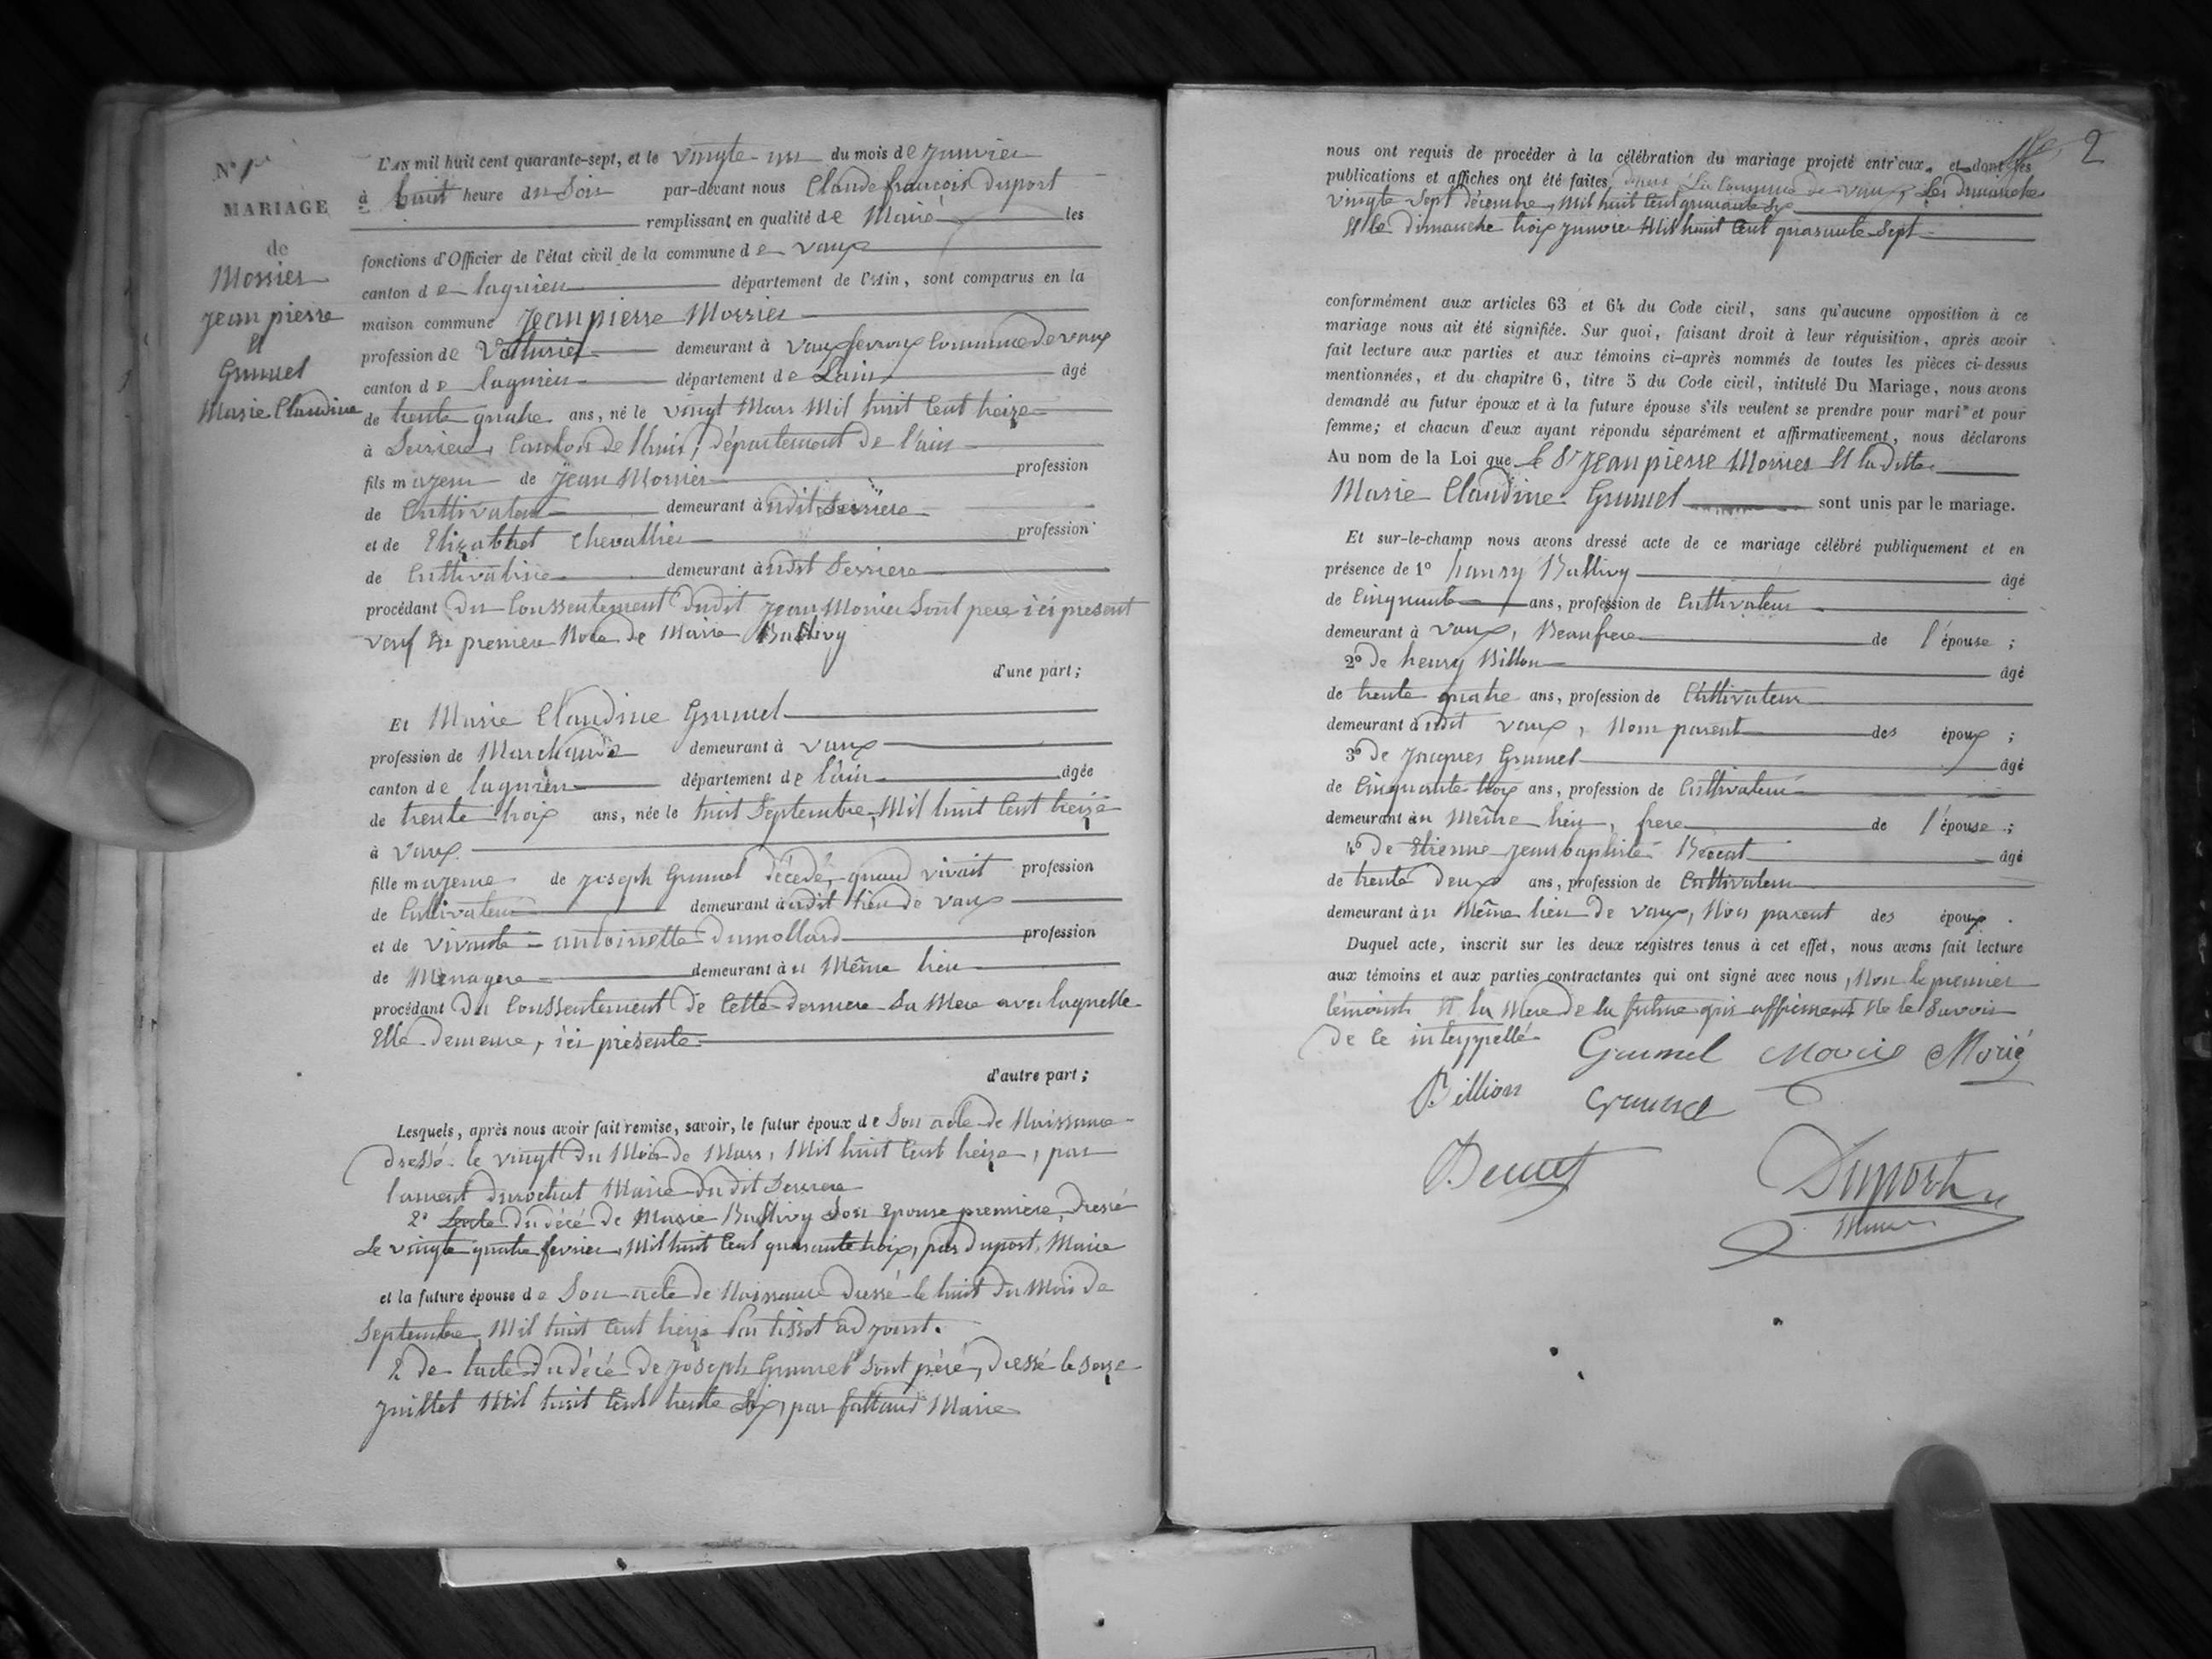 N° 1er
MARIAGE
de
Morrier
jean pierre
Et
Grumel
Marie Claudine
L'AN mil huit cent quarante-sept, et le vingte un du mois de janvier
à huit heure du Soir par-devant nous Claude françois duport
remplissant en qualité de Maire les
fonctions d'Officier de l'état civil de la commune de vaux
canton de lagnieu département de l'Ain, sont comparus en la
maison commune Jean pierre Morrier
profession de Voiturier demeurant à vaux fevroux Commune de vaux
canton de lagnieu département de Lain âgé
de trente quatre ans, né le vingt Mars Mil huit Cent treize
à Serriere, Canton de lhuis, département de l'ain
fils majeur de Jean Morrier profession
de Cultivateur demeurant à udit Serriere
et de Elizabhet Chevallier profession
de Cultivatrice demeurant à udit Serriere
procédant du Conssentement dudit Jean Morrier Sont pere ici present
veuf En premiere Noce de Marie Ballivy
d'une part;
Et Marie Claudine Grumel
profession de Marchande demeurant à vaux
canton de lagnieu département de l'ain âgée
de trente trois ans, née le huit Septembre, Mil huit Cent treize
à vaux
fille majeure de joseph Grumel décédé, quand vivait profession
de Cultivateur demeurant à udit lieu de vaux
et de vivante = antoinette dumollard profession
de Menagere demeurant à u Même lieu
procédant du Conssentement de Cette derniere Sa Mere avec laquelle
Elle demeure, ici présente
d'autre part;
Lesquels, après nous avoir fait remise, savoir, le futur époux de Son acte de Naissance
dressé le vingt du Mois de Mars, Mil huit Cent treize, par
laurent durochat Maire dudit Serriere
2° Lacte du décé de Marie Ballivy Son Epouse premiere, dressé
Le vingte quatre fevrier, Mil huit Cent quarante trois, par duport, Maire
et la future épouse de Son acte de Naissance dressé le huit du Mois de
Septembre, Mil huit Cent treize Par tissot adjoint.
2 de lacte du décé de joseph Grumel Sont péré, dressé le seize
juillet Mil huit Cent trente Six, par fattaud Maire
2
nous ont requis de procéder à la célébration du mariage projeté entr'eux, et dont les
publications et affiches ont été faites dans La Commune de vaux, Les dimanche
vingte Sept décembre, Mil huit Cent quarante Six
Et le dimanche trois janvier Mil huit Cent quarante Sept
conformément aux articles 63 et 64 du Code civil, sans qu'aucune opposition à ce
mariage nous ait été signifiée. Sur quoi, faisant droit à leur réquisition, après avoir
fait lecture aux parties et aux témoins ci-après nommés de toutes les pièces ci-dessus
mentionnées, et du chapitre 6, titre 5 du Code civil, intitulé Du Mariage, nous avons
demandé au futur époux et à la future épouse s'ils veulent se prendre pour mari et pour
femme; et chacun d'eux ayant répondu séparément et affirmativement, nous déclarons
Au nom de la Loi que le Sr Jean pierre Morrier Et la ditte
Marie Claudine Grumel sont unis par le mariage.
Et sur-le-champ nous avons dressé acte de ce mariage célébré publiquement et en
présence de 1° hanry Ballivy âgé
de Cinquante ans, profession de Cultivateur
demeurant à vaux, Beaufrere de l'épouse;
2° de henry Billon âgé
de trente quatre ans, profession de Cultivateur
demeurant à udit vaux, Nom parent des époux;
3° de jacques Grumel âgé
de Cinquante trois ans, profession de Cultivateur
demeurant àu Même lieu, frere de l'épouse;
4° de Etienne jean baptiste âgé
de trente deux ans, profession de Cultivateur
demeurant àu Même lieu de vaux, Non parent des époux.
Duquel acte, inscrit sur les deux registres tenus à cet effet, nous avons fait lecture
aux témoins et aux parties contractantes qui ont signé avec nous, Non le premier
témoint Et la Mere de la future qui affirment Ne le Savoir
de Ce interppellé
Grumel Morié
Billion Grumel
Duport
Maire